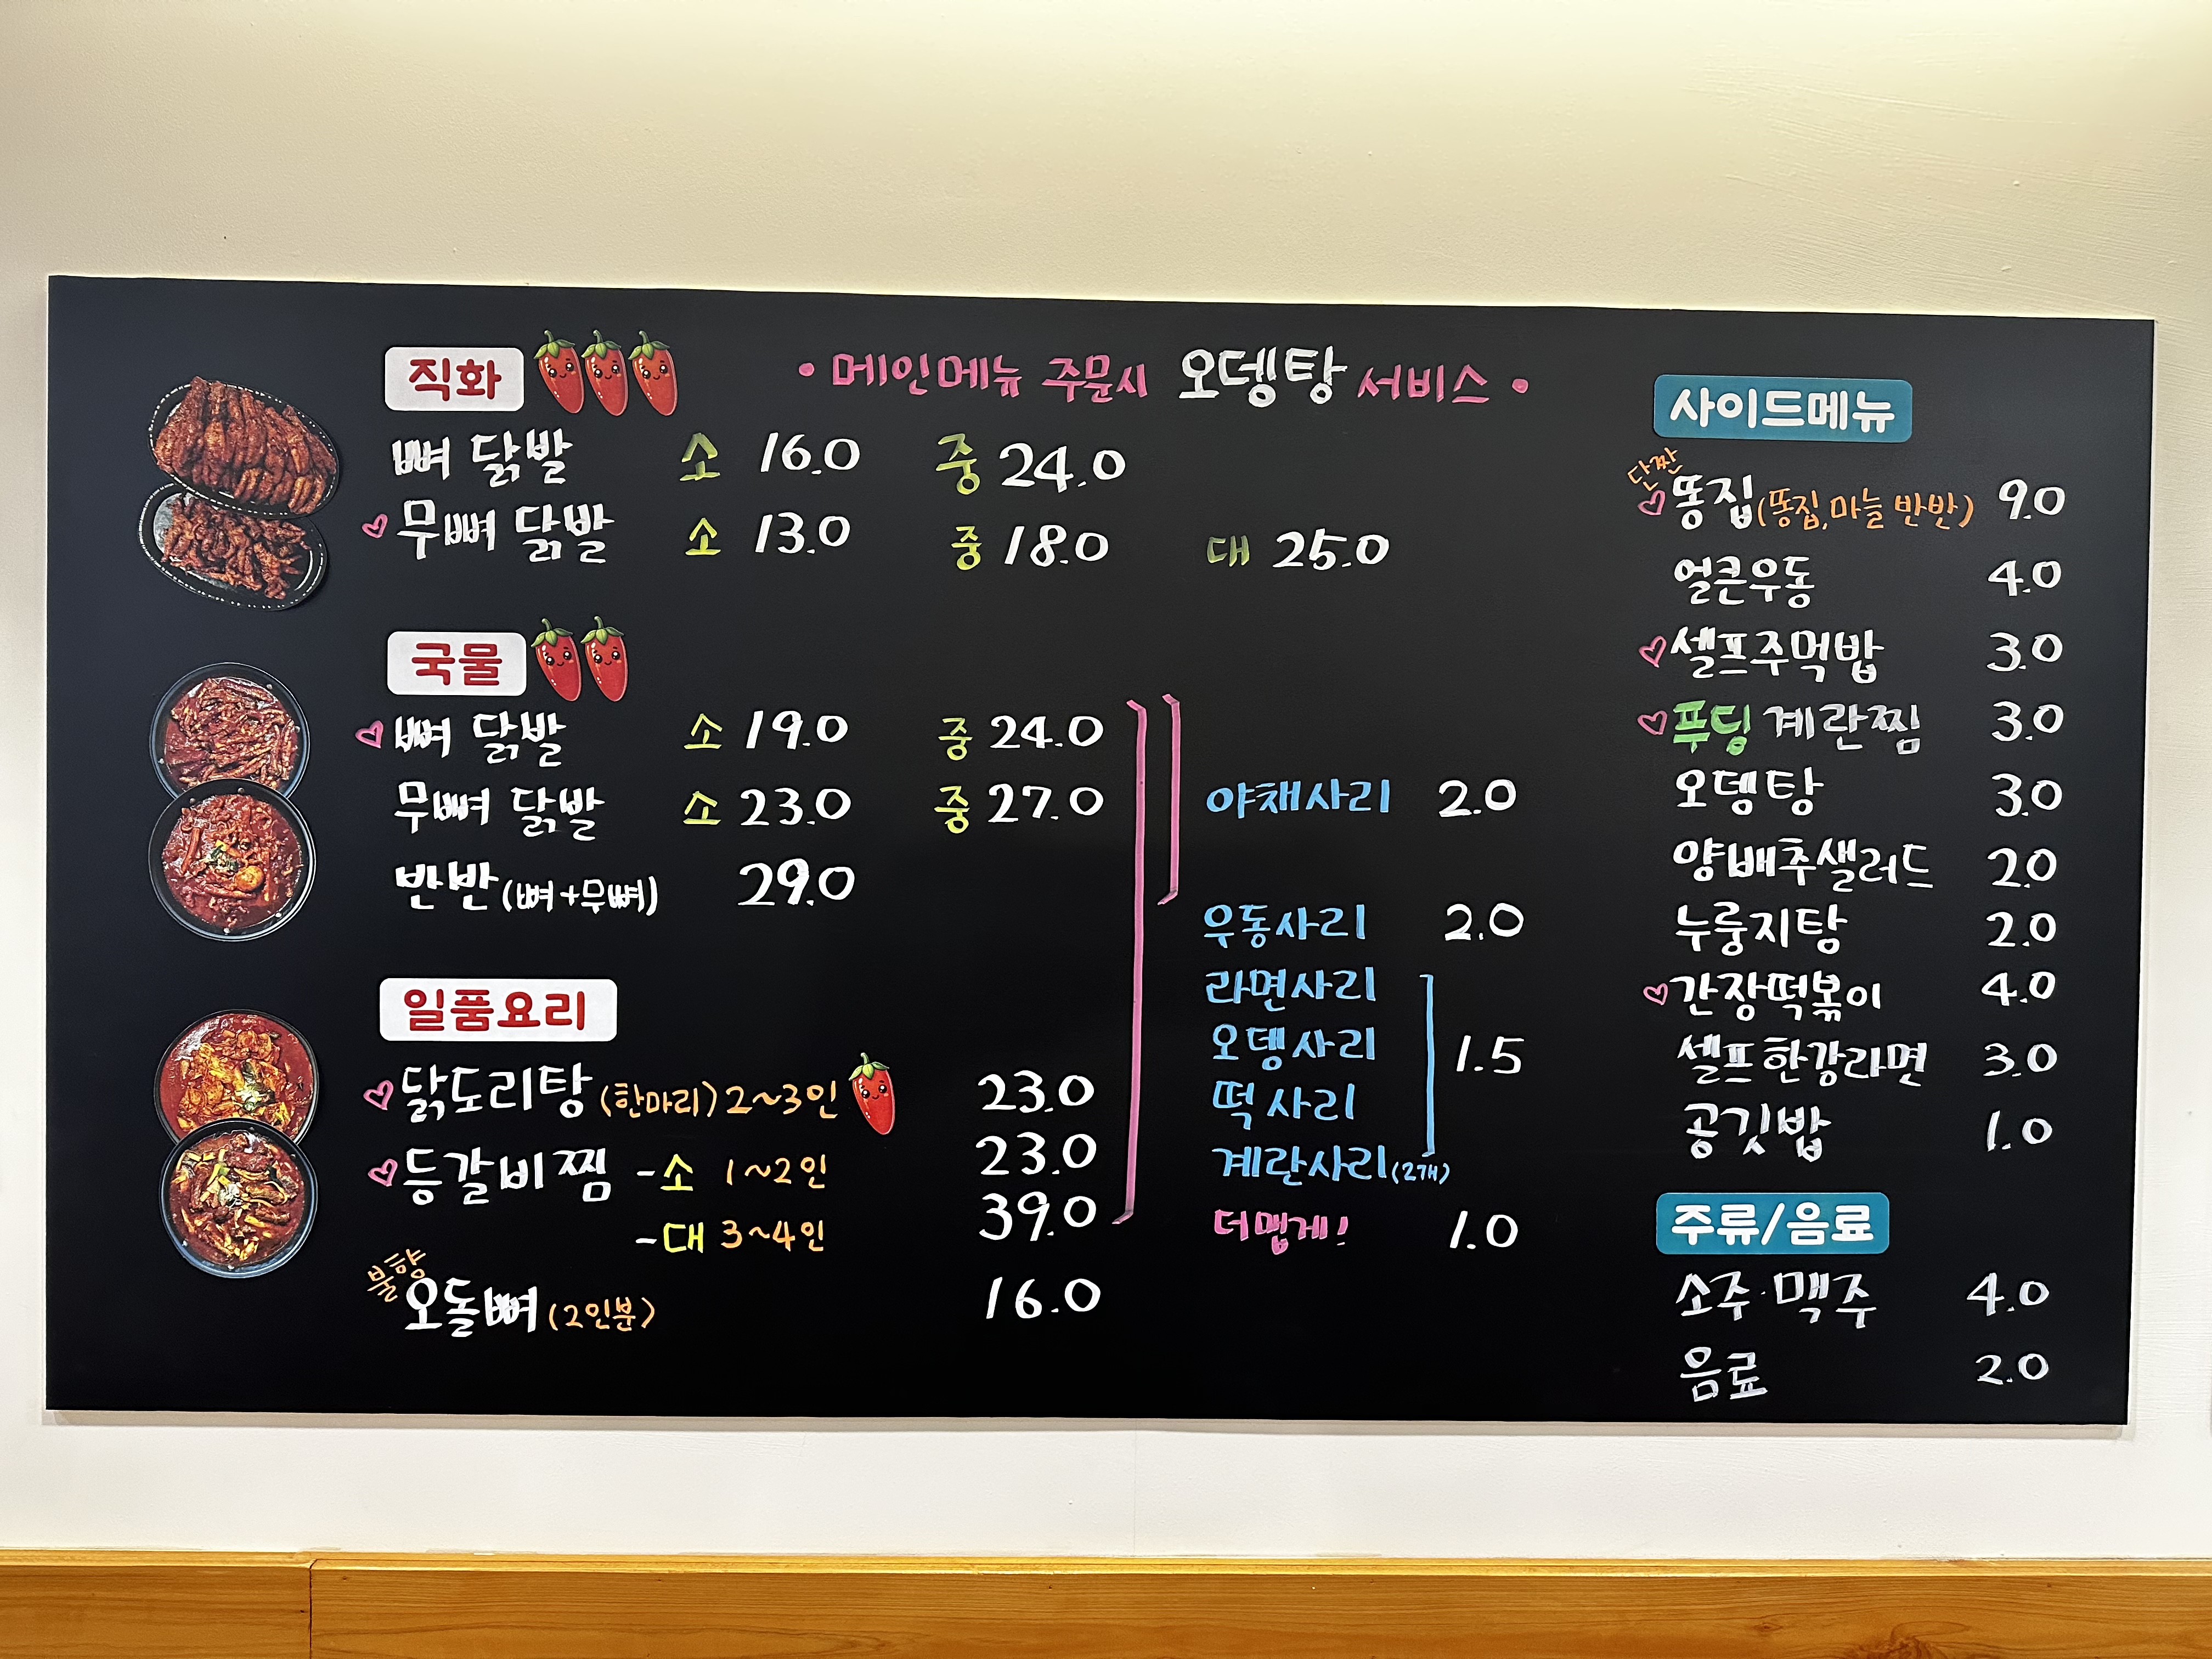 직화
• 메인메뉴 주문시 오뎅탕 서비스 •
뼈 닭발 소 16.0 중 24.0
무뼈 닭발 소 13.0 중 18.0 대 25.0
국물
뼈 닭발 소 19.0 중 24.0
무뼈 닭발 소 23.0 중 27.0
반반 (뼈+무뼈) 29.0
일품요리
닭도리탕 (한마리) 2~3인 23.0
등갈비찜 -소 1~2인 23.0
-대 3~4인 39.0
불향
오돌뼈 (2인분) 16.0
야채사리 2.0
우동사리 2.0
라면사리
오뎅사리 1.5
떡사리
계란사리 (2개)
더맵게! 1.0
사이드메뉴
단짠
똥집 (똥집, 마늘 반반) 9.0
얼큰우동 4.0
셀프주먹밥 3.0
푸딩 계란찜 3.0
오뎅탕 3.0
양배추샐러드 2.0
누룽지탕 2.0
간장떡볶이 4.0
셀프한강라면 3.0
공깃밥 1.0
주류/음료
소주·맥주 4.0
음료 2.0